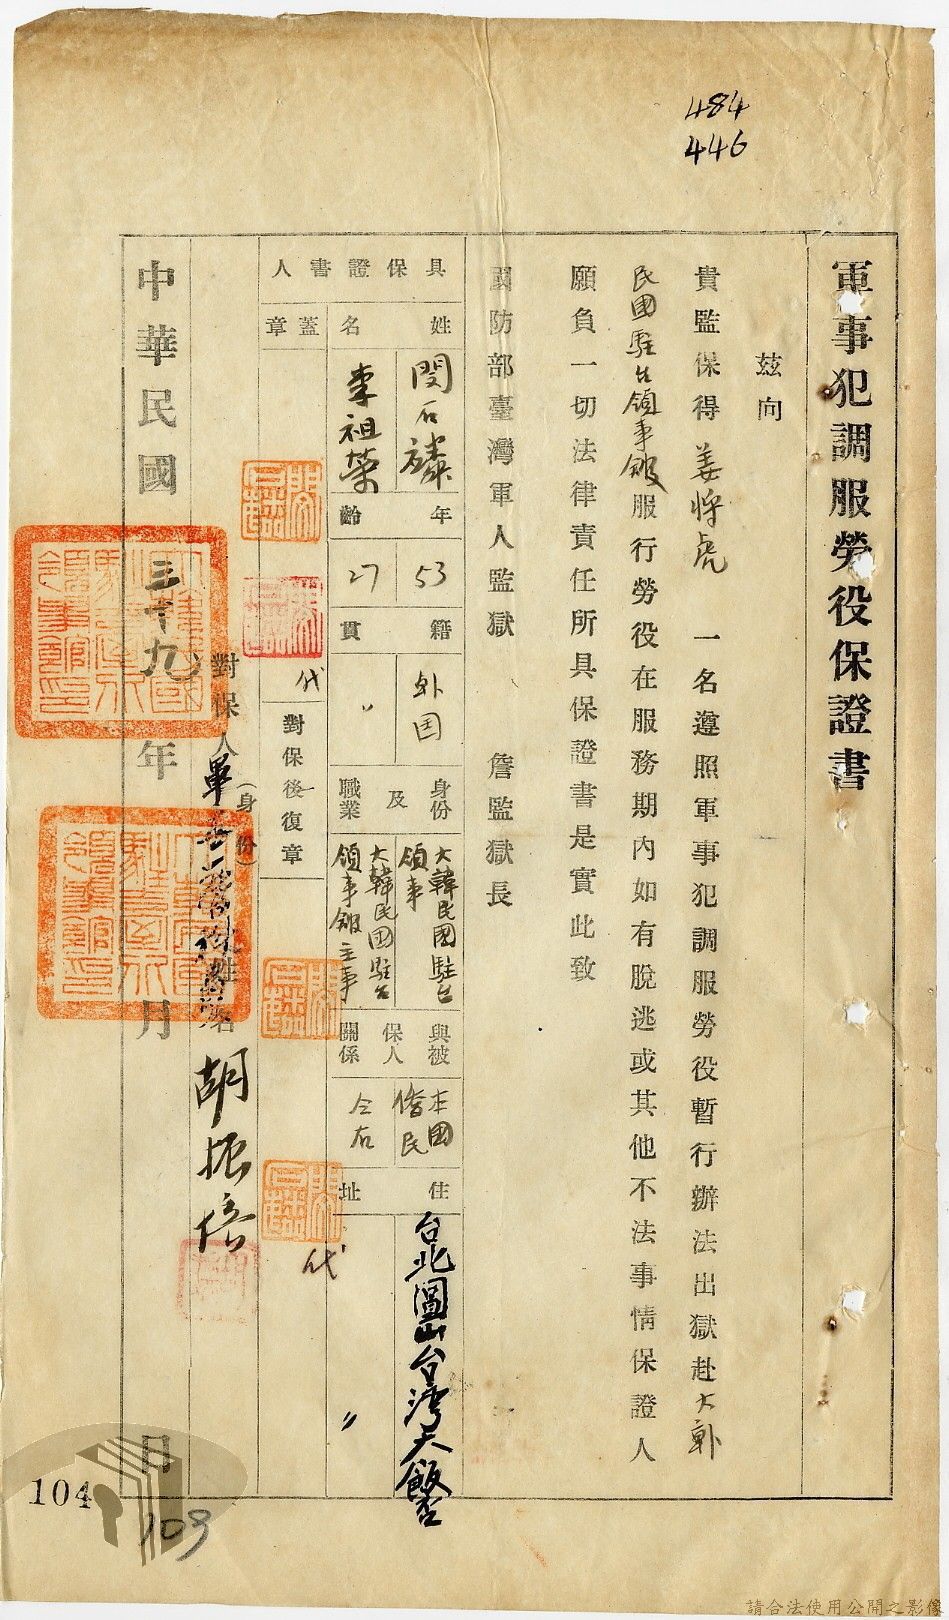 484
446
軍事犯調服勞役保證書
茲向
貴監保得姜將虎一名遵照軍事犯調服勞役暫行辦法出獄赴大韓
民國駐台領事館服行勞役在服務期內如有脫逃或其他不法事情保證人
願負一切法律責任所具保證書是實此致
國防部臺灣軍人監獄　詹監獄長
具保證書人
姓名
閔石麟
李祖榮
年齡
53
27
籍貫
外国
〃
身份及職業
大韓民國駐台領事
大韓民國駐台領事館主事
與被保人關係
本國僑民
仝右
住址
台北圓山台灣大飯店
〃
蓋章
代
對保後復章
代
對保人
(身份)
姓名
胡振信
中華民國三十九年　月　日
104
103
請合法使用公開之影像